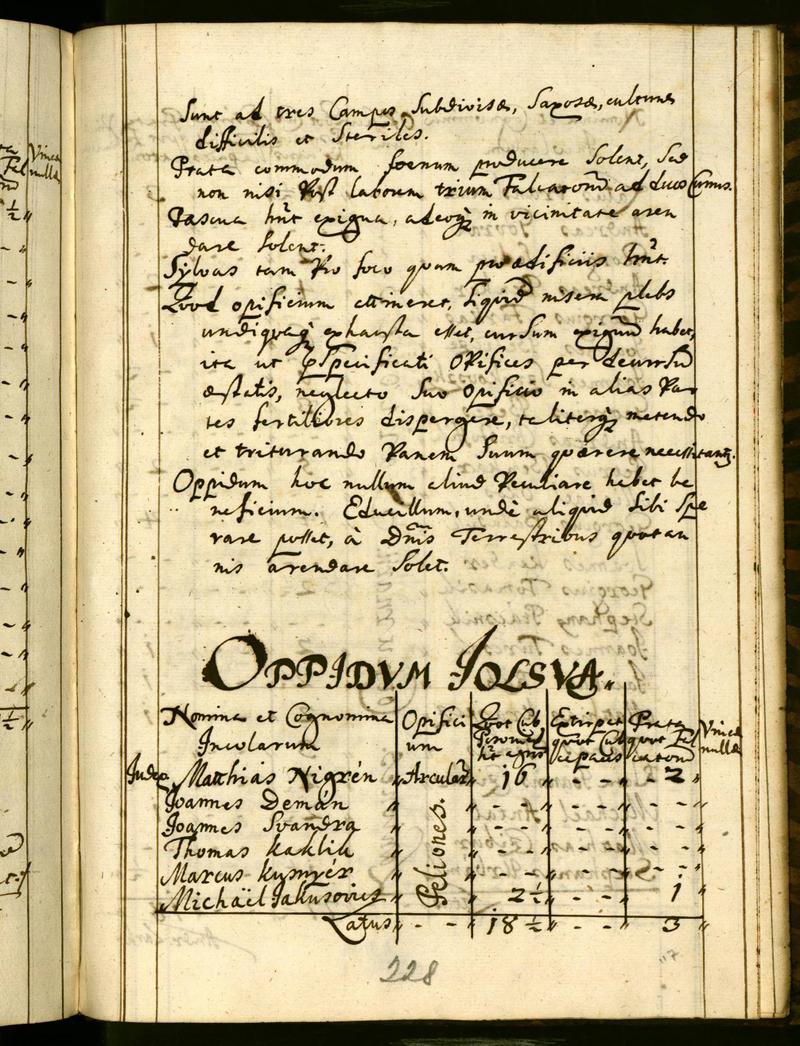 Sunt ad tres Campos Subdivisæ, Saxosæ, culturæ
difficilis et Steriles.
Prata commodum foenum producere Solent, Sed
non nisi Post laborem trium Falcatorum ad duos Currus.
Pascua hñt exigua, adeoq in vicinitate aren
dare Solent.
Sylvas tam Pro foco quam pro ædificiis hñt.
Quod opificium attineret, Siquid misera plebs
undiquaq exhausta esset, cursum exiguũ habet,
ita ut Specificati OPifices per decursũ
æstatis, neglecto Suo opificio in alias Par
tes fertiliores dispergere, taliterq metendo
et triturando Panem Suum quærere necessitantr.
Oppidum hoc nullum aliud Peculiare habet be
neficium. Educillum, unde aliquid Sibi Spe
rare posset, à Dñis Terrestribus quotan
nis arendare Solet.
OPPIDVM IOLSVA
Nomina et Cognomina Incolarum | Opificium | Quot Cub. | Extirpat quot Cub | Prata quot Fal catorũ | Vinea nulla
Judex Matthias Nigrén " Arculār " 16 " - - " - 2 "
Joannes Demán " " - - - " - - " - - "
Joannes Svandra " " - - - " - - " - - "
Thomas Kaklik " Peliones. " - - - " - - " - - "
Marcus Kusnyér " " - - - " - - " - - "
Michaël Jakusovics " " 2½ " - - " 1 "
Latus " - - " 18½ " - - " 3 "
228